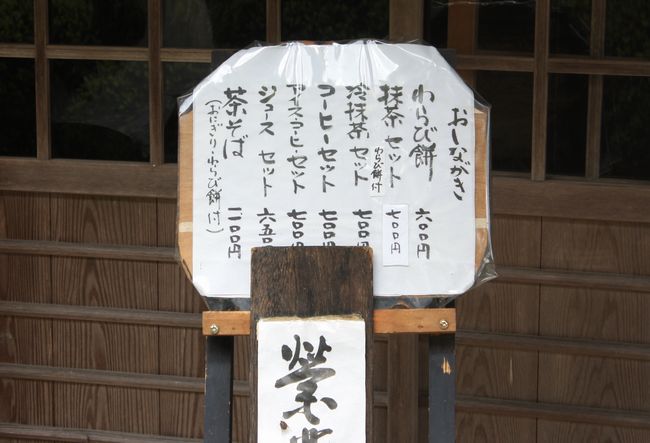 おしながき
わらび餅 六〇〇円
抹茶セット 七〇〇円
わらび餅付
冷抹茶セット 七〇〇円
コーヒーセット 七〇〇
アイスコーヒーセット 七〇〇
ジュースセット 六五〇
茶そば 一二〇〇円
(おにぎり・わらび餅付)
営